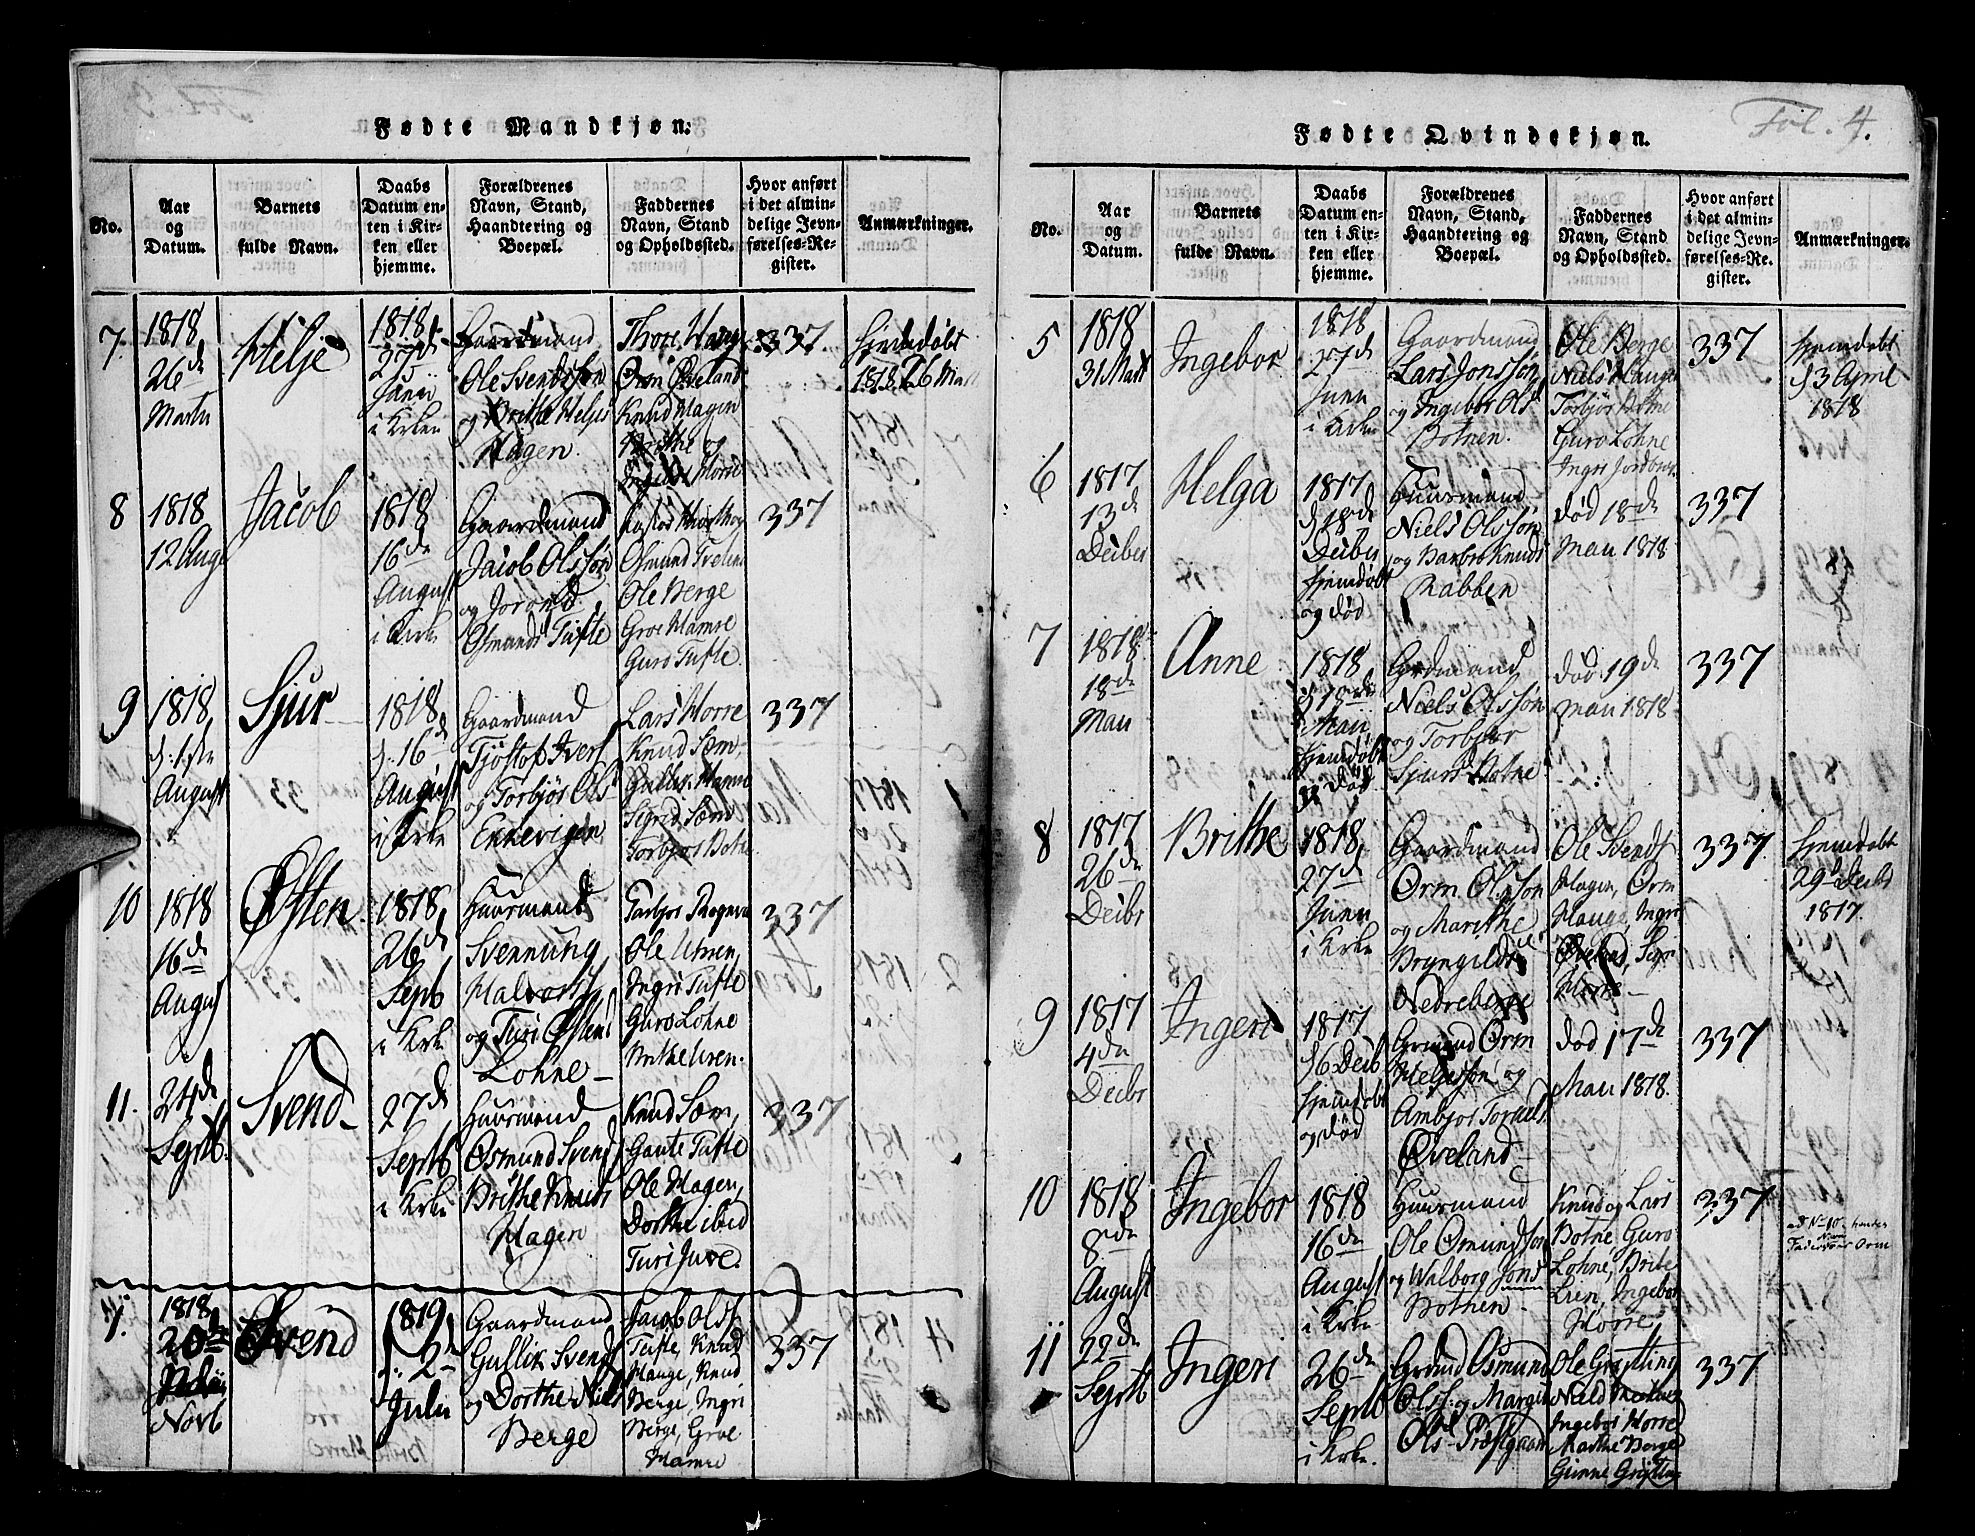 Fødte Mandkjøn.
No.
Aar
og
Datum.
Barnets
fulde Navn.
Daabs
Datum en-
ten i Kir-
ken eller
hjemme.
Forældrenes
Navn, Stand,
Haandtering og
Boepæl.
Faddernes
Navn, Stand
og Opholdssted.
Hvor anført
i det almin-
delige Jevn-
førelses-Re-
gister.
Anmærkninger.
7.
1818,
26de
Martii
Helje
1818
27de
Junii
i Kirken
Gaardmand
Ole Svendssøn
og Brithe Heljes
Hagen.
Thore Hauge
Orm Øveland
Knud Hagen
Brithe og
Ingebor Horre
337.
hjemdøbt
1818 26 Mart
8
1818
12 Aug
Jacob
1818
16de
August
i Kirke
Gaardmand
Jacob Olssøn
og Jorond
Osmunds Tufte
Osmund Tveland
Ole Berge
Groe Mamre
Guro Tufte.
337
9
1818,
d: 1ste
August
Sjur
1818
d. 16de
August
i Kirke
Gaardmand
Tjøstof Ivers
og Torbjør Ols
Ekkevigen
Lars Horre
Knud Sæm,
Gullik Mamre
Sigrid Sæm
Torbjør Botne
337
10
1818
16de
August
Østen.
1818,
26de
Septb
i Kirke
Huusmand
Svennung
Halvorss
og Turi Østens
Lohne
Ole Uren,
Ingri Tufte
Guro Lohne
Brithe Uren.
337
11.
24de
Septb.
Svend
27de
Septb
i Kirke
Huusmand
Osmund Svends
Brithe Knuds
Hagen
Knud Sæm,
Gaute Tufte
Ole Hagen,
Dorthe ibid
Turi Juve.
337
1.
1818,
20de
Novb
Svend
1819
d: 2de
Julii
Gaardmand
Gullik Svends
og Dorthe Niels
Berge
Jacob Olds
Tufte, Knud
Hauge, Knud
Berge, Ingri
Berge, Groe
Mamre
337
Fol. 4.
Fødte Qvindekjøn.
No.
Aar
og
Datum.
Barnets
fulde Navn.
Daabs
Datum en-
ten i Kir-
ken eller
hjemme.
Forældrenes
Navn, Stand,
Haandtering og
Boepæl.
Faddernes
Navn, Stand
og Opholdssted.
Hvor anført
i det almin-
delige Jevn-
førelses-Re-
gister.
Anmærkninger.
5
1818
31 Mart
Ingebor
1818,
27de
Junii
i Kirken
Gaardmand
Lars Jonssøn
og Ingebor Ols
Botnen.
Ole Berge
Niels Hauge
Torbjør Botne
Guro Lohne
Ingri
337
hjemdøbt
d 3 April
1818
6
1817
13de
Decibr
Helga
1817
d 18de
Decibr
hjemdøbt
og død
Huusmand
Niels Olssøn
og Barbro Knuds
Rabben
død 18de
Mai 1818
337
7
1818
18de
Maii
Anne
1818
d 19de
Maii
hjemdøbt
og død
Grdmand
Niels Olssøn
og Torbjør
Sjurs Botne
død 19de
Maii 1818
337
8
1817
26de
Decibr
Brithe
1818,
27de
Junii
i Kirke
Gaardmand
Orm Olssøn
og Marithe
Bryngilds
Nedreberge
Ole Svends
Hagen, Orm
Hauge, Ingri
Horre
337
hjemdøbt
29d Decibr
1817.
9
1817
4de
Decibr
Ingeri
1817
d 6 Decib
hjemdøbt
og død
Grmand Orm
Heljessøn og
Ambjør
Øveland
død 17de
Maii 1818.
337
10
1818
8de
August
Ingebor
1818
16de
August
i Kirke
Huusmand
Ole Osmundssøn
og Walborg Jons
Botnen
Knud og Lars
Botne, Guro
Lohne, Brite
Lien, Ingebor
Horre,
337
ad No 10
Navn
Orm
11
22de
Septb
Ingeri
26de
Septb
i Kirke.
Grmd Osmund
Olss: og Margit
Ols Præstgaard
Ole Grøtting
Ingebor Horre
Marthe Berge
Gunne Grøtting
337